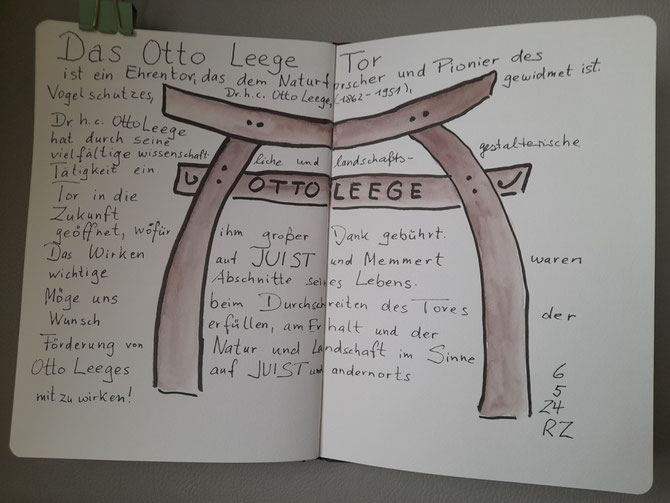 Das Otto Leege Tor
ist ein Ehrentor, das dem Naturforscher und Pionier des
Vogelschutzes, Dr. h.c. Otto Leege, (1862-1951), gewidmet ist.
Dr. h.c. Otto Leege
hat durch seine
vielfältige wissenschaft- liche und landschafts- gestalterische
Tätigkeit ein
OTTO LEEGE
Tor in die
Zukunft
geöffnet, wofür ihm großer Dank gebührt.
Das Wirken auf JUIST und Memmert waren
wichtige Abschnitte seines Lebens.
Möge uns beim Durchschreiten des Tores der
Wunsch erfüllen, am Erhalt und der
Förderung von Natur und Landschaft im Sinne
Otto Leeges auf JUIST und andernorts
mit zu wirken!
6
5
24
RZ